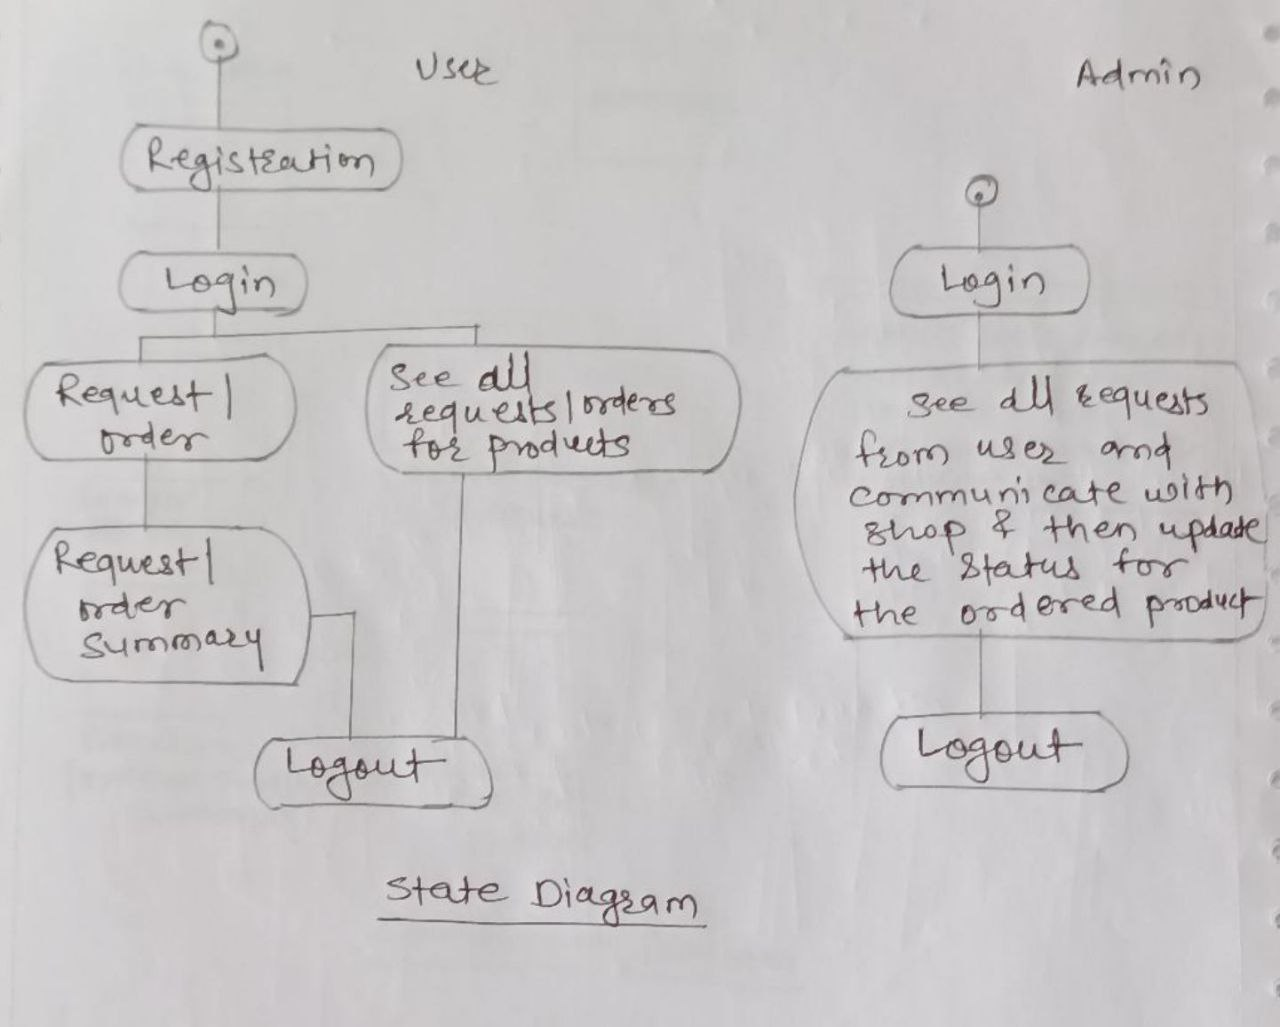 User
Admin
Registration
Login
Request/
order
See all
requests/orders
for products
Request/
order
Summary
Logout
Login
See all requests
from user and
communicate with
shop & then update
the status for
the ordered product
Logout
State Diagram